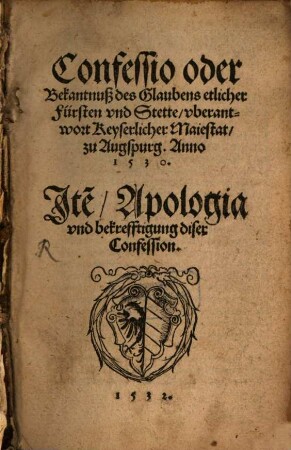 Confessio oder
Bekantnuß des Glaubens etlicher
Fürsten vnd Stette/ vberant-
wort Keyserlicher Maiestat/
zu Augspurg. Anno
1530.
Jtē/ Apologia
vnd bekrefftigung diser
Confession.
R
1532.